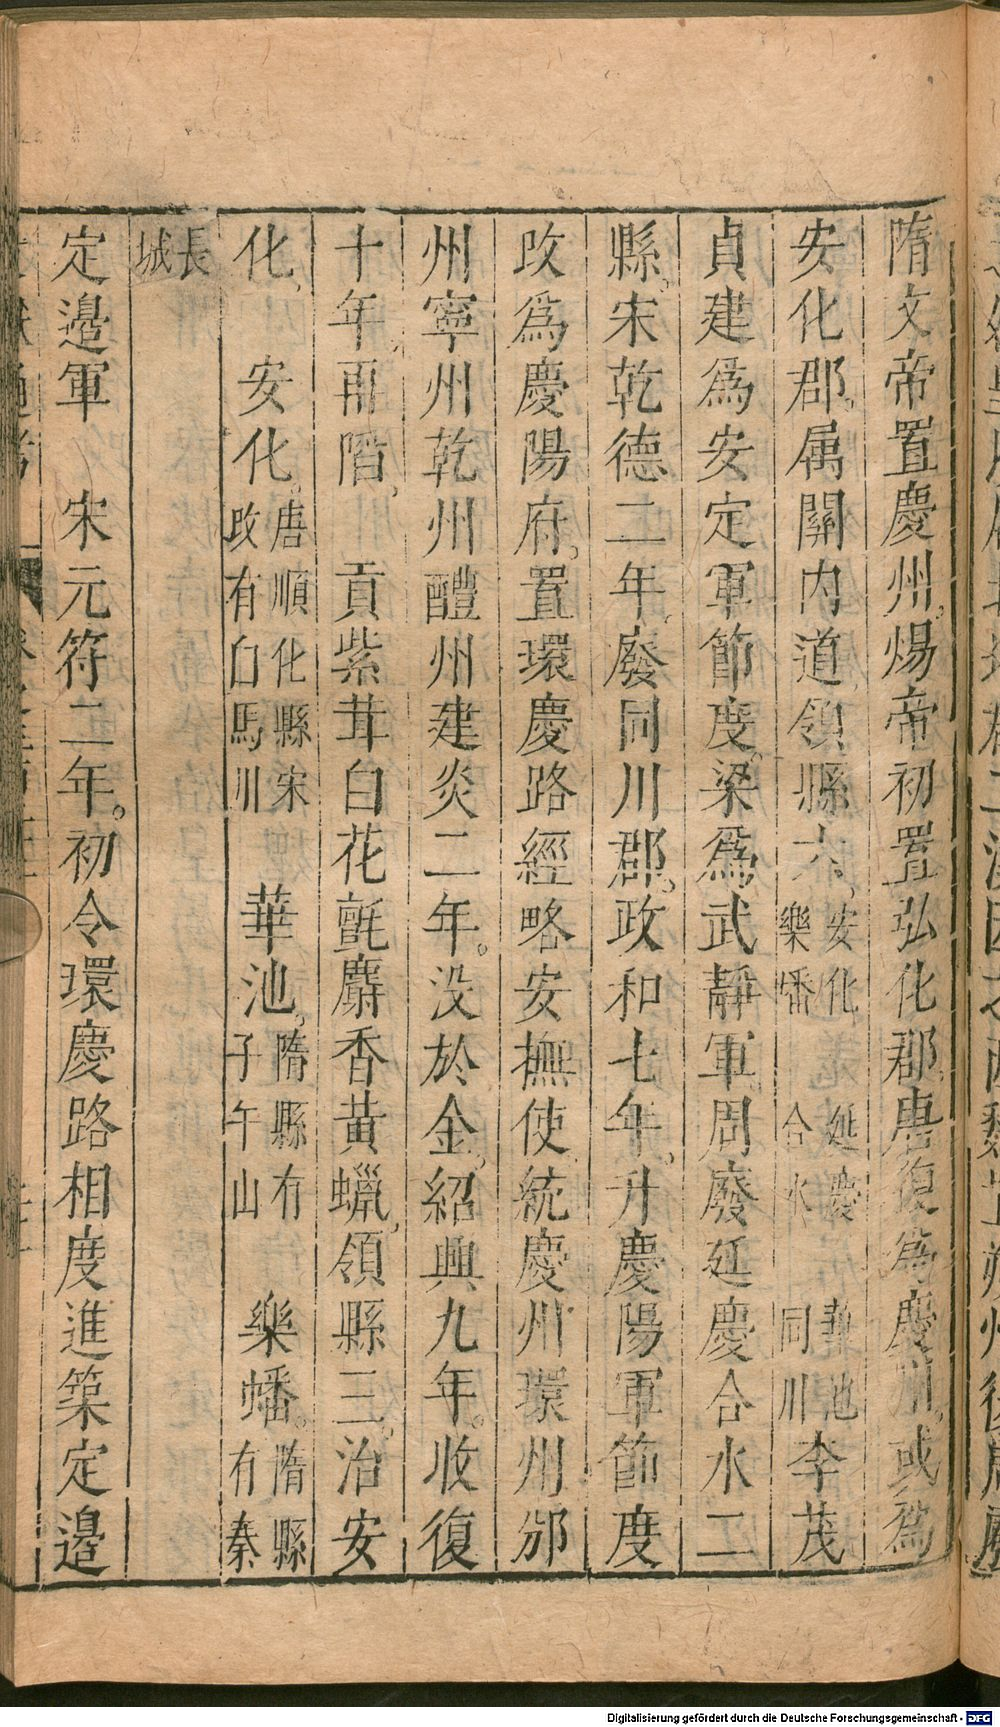 隋文帝置慶州。煬帝初置弘化郡。唐復爲慶州。或爲
安化郡。属關内道。領縣六。安化樂蟠 延慶合水 華池同川 李茂
貞建爲安定軍節度。梁爲武靜軍。周廢延慶合水二
縣。宋乾德二年。廢同川郡。政和七年。升慶陽軍節度
改爲慶陽府。置環慶路經略安撫使。統慶州環州邠
州寧州乾州醴州建炎二年。没於金。紹興九年。收復
十年。再陷。 貢紫茸白花氈麝香黃蠟。領縣三。治安
化。 安化。唐順化縣宋改有白馬川 華池。隋縣有子午山 樂蟠。隋縣有秦
長城
定邉軍 宋元符二年。初令環慶路相度進築定邉
Digitalisierung gefördert durch die Deutsche Forschungsgemeinschaft - DFG